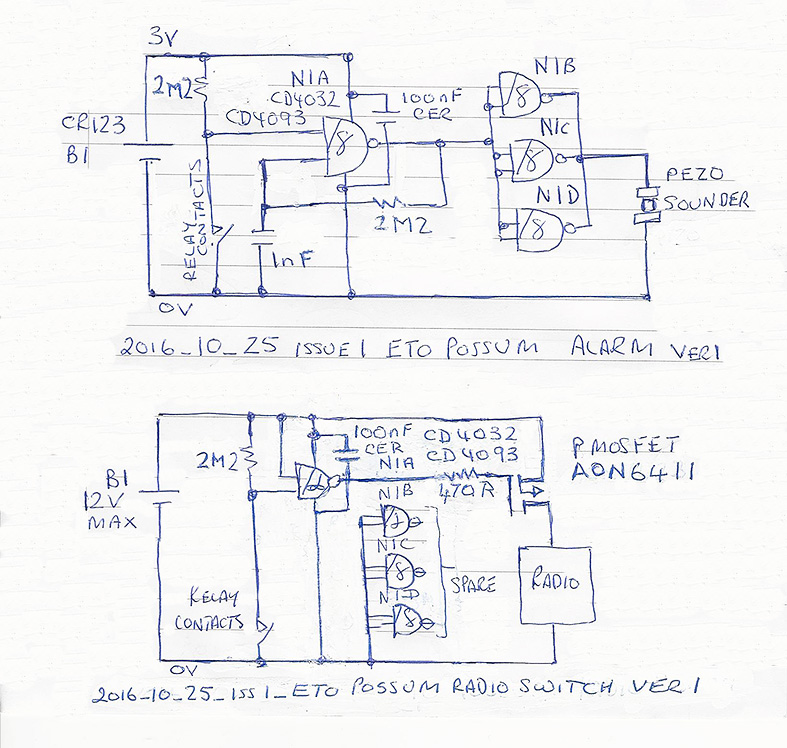 3V
2M2
N1A
CD4032
CD4093
100nF
CER
N1B
N1C
N1D
CR123
B1
RELAY
CONTACTS
2M2
1nF
PEZO
SOUNDER
0V
2016_10_25 ISSUE 1 ETO POSSUM ALARM VER1
2M2
100nF
CER
N1A
CD4032
CD4093
PMOSFET
AON6411
B1
12V
MAX
470R
N1B
N1C
N1D
SPARE
RADIO
RELAY
CONTACTS
0V
2016_10_25_ISS 1_ETO POSSUM RADIO SWITCH VER 1